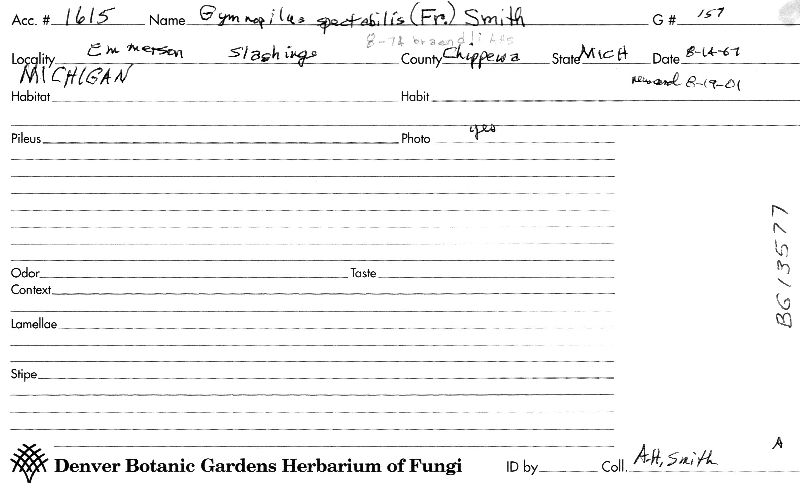 Acc. # 1615 Name Gymnopilus spectabilis (Fr.) Smith G # 157
Locality Emmerson Slashings County Chippewa State Mich Date 8-14-67
MICHIGAN
8-19-01
Habitat Habit
Pileus Photo yes
Odor Taste
Context
Lamellae
Stipe
BG13577
A
Denver Botanic Gardens Herbarium of Fungi ID by Coll. A.H. Smith